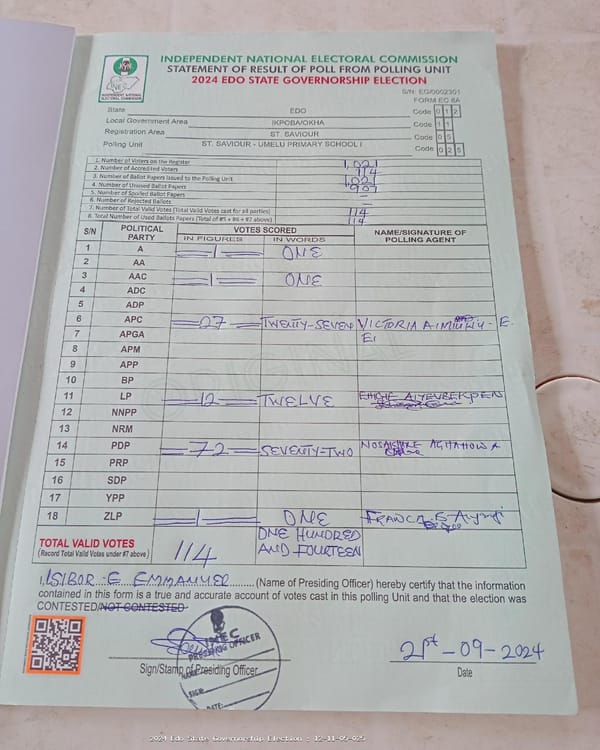 INDEPENDENT NATIONAL ELECTORAL COMMISSION
STATEMENT OF RESULT OF POLL FROM POLLING UNIT
2024 EDO STATE GOVERNORSHIP ELECTION
INDEPENDENT NATIONAL ELECTORAL COMMISSION
S/N: EG/0002301
FORM EC 8A
State EDO Code 0 1 2
Local Government Area IKPOBA/OKHA Code 1 1
Registration Area ST. SAVIOUR Code 0 5
Polling Unit ST. SAVIOUR - UMELU PRIMARY SCHOOL I Code 0 2 5
1. Number of Voters on the Register 1,021
2. Number of Accredited Voters 114
3. Number of Ballot Papers Issued to the Polling Unit 1,021
4. Number of Unused Ballot Papers 907
5. Number of Spoiled Ballot Papers –
6. Number of Rejected Ballots –
7. Number of Total Valid Votes (Total Valid Votes cast for all parties) 114
8. Total Number of Used Ballots Papers (Total of #5 + #6 + #7 above) 114
S/N POLITICAL PARTY VOTES SCORED NAME/SIGNATURE OF POLLING AGENT
IN FIGURES IN WORDS
1 A 1 ONE
2 AA
3 AAC 1 ONE
4 ADC
5 ADP
6 APC 27 TWENTY-SEVEN VICTORIA
7 APGA
8 APM
9 APP
10 BP
11 LP 12 TWELVE
12 NNPP
13 NRM
14 PDP 72 SEVENTY-TWO
15 PRP
16 SDP
17 YPP
18 ZLP 1 ONE
TOTAL VALID VOTES 114 ONE HUNDRED AND FOURTEEN
(Record Total Valid Votes under #7 above)
I, ISIBOR E EMMANUEL (Name of Presiding Officer) hereby certify that the information
contained in this form is a true and accurate account of votes cast in this polling Unit and that the election was
CONTESTED/NOT CONTESTED
INEC
PRESIDING OFFICER
SIGN:
DATE:
21st-09-2024
Sign/Stamp of Presiding Officer
Date
2024 Edo State Governorship Election : 12-11-05-025